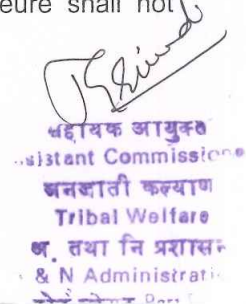 shall not
सहायक आयुक्त
sistant Commissione
जनजाती कल्याण
Tribal Welfare
अ. तथा नि प्रशासन
& N Administrati